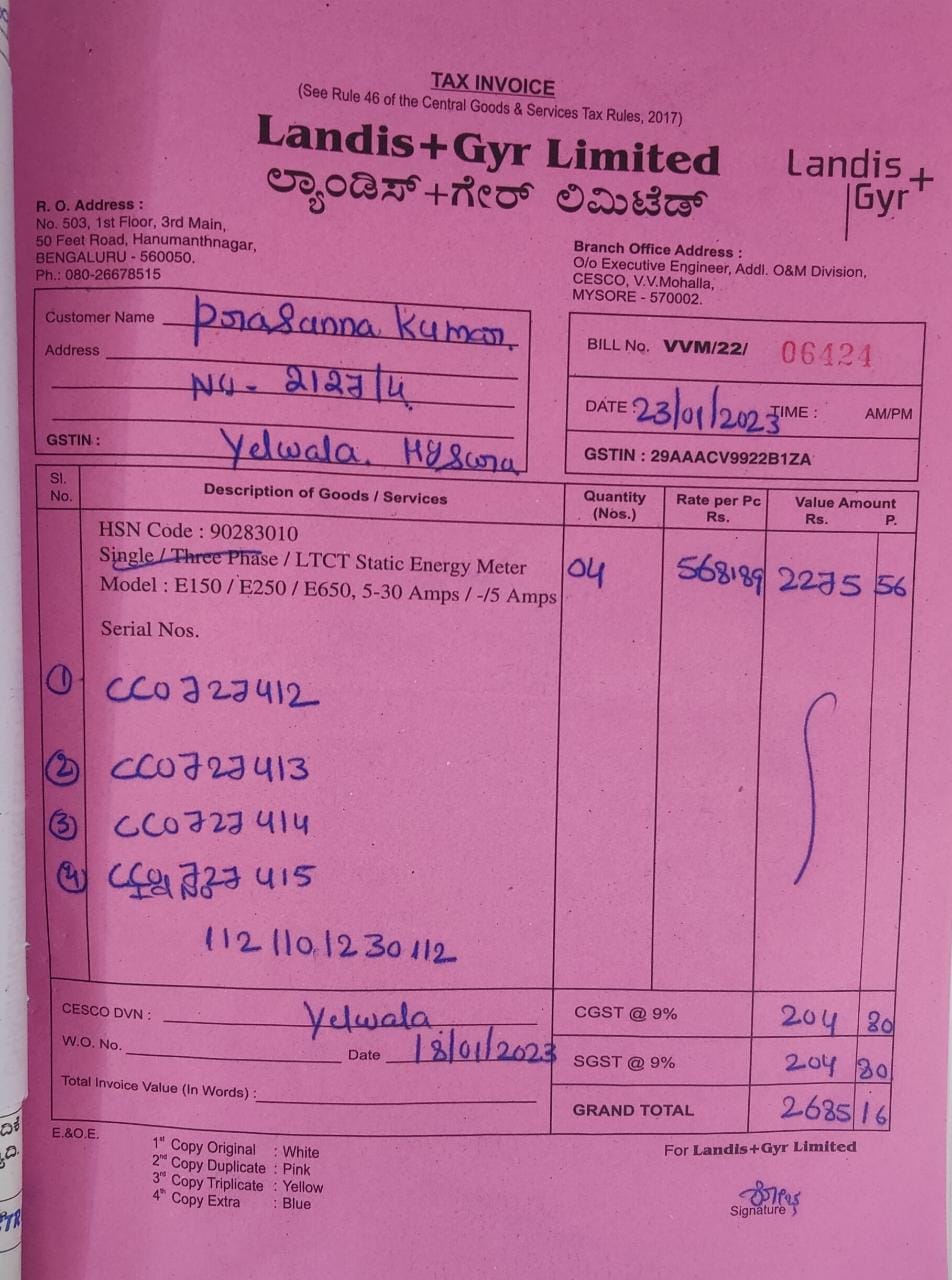 TAX INVOICE
(See Rule 46 of the Central Goods & Services Tax Rules, 2017)
Landis+Gyr Limited
ಲ್ಯಾಂಡಿಸ್+ಗೇರ್ ಲಿಮಿಟೆಡ್
Landis+
Gyr
R. O. Address :
No. 503, 1st Floor, 3rd Main,
50 Feet Road, Hanumanthnagar,
BENGALURU - 560050.
Ph.: 080-26678515
Branch Office Address :
O/o Executive Engineer, Addl. O&M Division,
CESCO, V.V.Mohalla,
MYSORE - 570002.
Customer Name Prasanna Kumar.
Address
No - 2127/4
GSTIN : Yelwala. Mysora
BILL No. VVM/22/ 06424
DATE : 23/01/2023 TIME : AM/PM
GSTIN : 29AAACV9922B1ZA
Sl. No. Description of Goods / Services Quantity (Nos.) Rate per Pc Rs. Value Amount Rs. P.
HSN Code : 90283010
Single / Three Phase / LTCT Static Energy Meter 04 568.89 2275 56
Model : E150 / E250 / E650, 5-30 Amps / -/5 Amps
Serial Nos.
① CC0727412
② CC0727413
③ CC0727414
④ CC0727415
1121101230112
CESCO DVN : Yelwala
W.O. No. Date 18/01/2023
Total Invoice Value (In Words) :
CGST @ 9% 204 80
SGST @ 9% 204 80
GRAND TOTAL 2685 16
E.&O.E.
1st Copy Original : White
2nd Copy Duplicate : Pink
3rd Copy Triplicate : Yellow
4th Copy Extra : Blue
For Landis+Gyr Limited
Signature